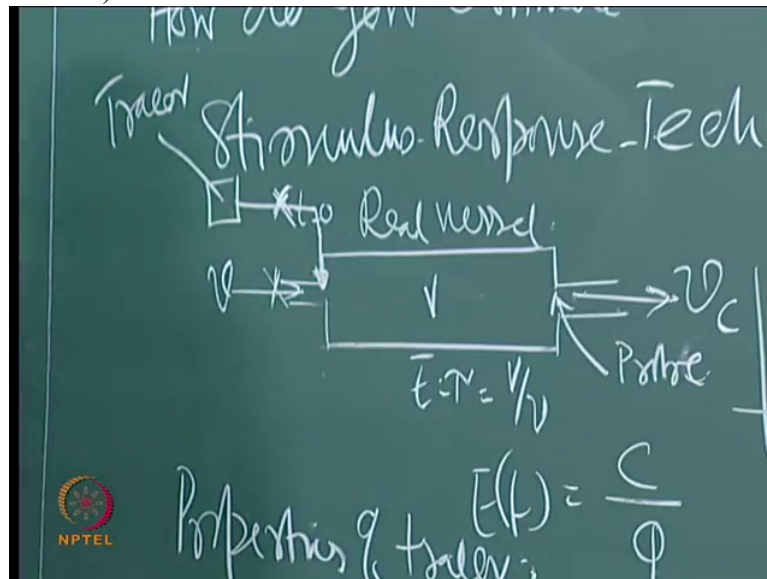 How do you
Tracer
Stimulus-Response-Tech
t=0 Real vessel.
v V v
C
t̄=τ=V/v
Probe
E(t) = C/Q
Properties of tracer:
NPTEL